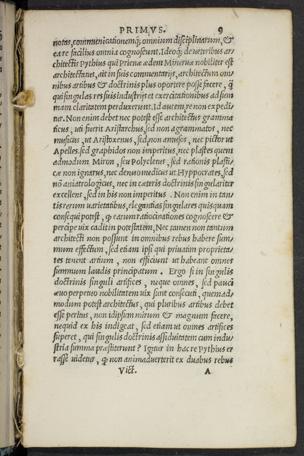 PRIMVS. 9
notas, communicationemq; omnium disciplinarum, &
ea re facilius omnia cognoscunt. Ideoq; de ueteribus ar
chitectis Pythius qui Prienæ ædem Mineruæ nobiliter est
architectatus, ait in suis commentarijs, architectum om
nibus artibus & doctrinis plus oportere posse facere, q
qui singulas res suis industrijs et exercitationibus ad sum
mam claritatem perduxerunt. Id autem re non expedi
tur. Non enim debet nec potest esse architectus gramma
ticus, uti fuerit Aristarchus, sed non agrammatos, nec
musicus, ut Aristoxenus, sed non amusos, nec pictor ut
Apelles, sed graphidos non imperitus, nec plastes quem
admodum Miron, seu Polycletus, sed rationis plasti/
cæ non ignarus, nec denuo medicus ut Hyppocrates, sed
nõ aniatrologicus, nec in cæteris doctrinis singulariter
excellens, sed in his non imperitus. Non enim in tan/
tis rerum uarietatibus, elegantias singulares quisquam
consequi potest, q earum ratiocinationes cognoscere &
percipe uix cadit in potestatem, Nec tamen non tantum
architecti non possunt in omnibus rebus habere sum/
mum effectum, sed etiam ipsi qui priuatim proprieta/
tes tenent artium, non efficiunt ut habeant omnes
summum laudis principatum. Ergo si in singulis
doctrinis singuli artifices, neque omnes, sed pauci
æuo perpetuo nobilitatem uix sunt consecuti, quemad/
modum potest architectus, qui pluribus artibus debet
esse peritus, non id ipsum mirum & magnum facere,
nequid ex his indigeat, sed etiam ut omnes artifices
superet, qui singulis doctrinis assiduitatem cum indu/
stria summa præstiterunt? Igitur in hac re Pythius er
rasse uidetur, q non animaduerterit ex duabus rebus
Vict. A